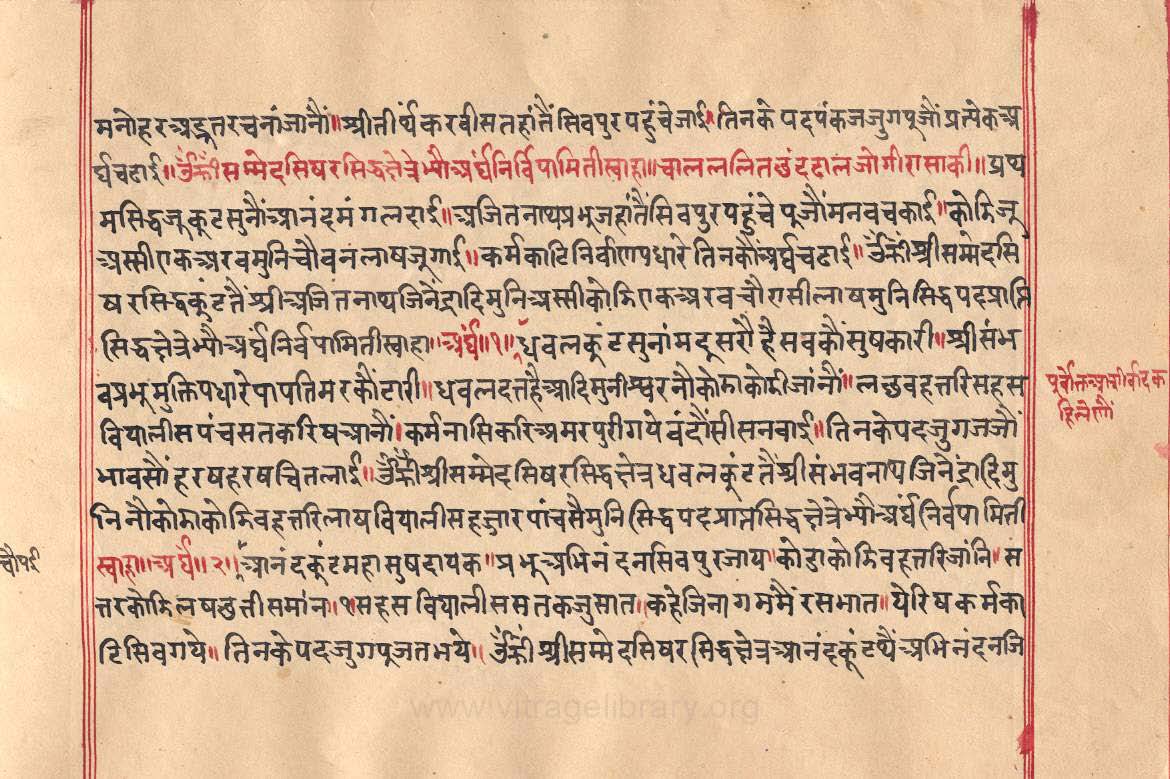 मनोहरअद्भुतरचनांजांनौं॥श्रीतीर्थंकरवीसतहांतैंसिवपुरपहुंचेजाई॥तिनकेपदपंकजजुगपूजौंप्रत्येकअ
र्घचढाई॥ॐह्रींसम्मेदसिषरसिद्धक्षेत्रेभ्यौअर्घंनिर्विपामितीस्वाहा॥चालललितछंदढालजोगीरासाकी॥प्रथ
मसिद्धजूकूटसुनौंआनंदमंगलदाई॥अजितनाथप्रभुजहांतैंसिवपुरपहुंचेपूजौंमनवचकाई॥कोडिजू
अस्सीएकअरवमुनिचौवनलाषजूगाई॥कर्मकाटिनिर्वाणपधारेतिनकौंअर्घचढाई॥ॐह्रींश्रीसम्मेदसि
षरसिद्धकूंटतैंश्रीअजितनाथजिनेंद्रादिमुनिअस्सीकोडिएकअरवचौरासीलाषमुनिसिद्धपदप्राप्ति
सिद्धक्षेत्रेभ्यौअर्घंनिर्वपामितीस्वाहा॥अर्घं॥१॥धवलकूंटसुनांमदूसरौहैसवकौंसुषकारी॥श्रीसंभ
वप्रभुमुक्तिपधारेपापतिमरकौंटारी॥धवलदत्तहैआदिमुनीश्वरनौकोडाकोडीजांनौं॥लछवहत्तरिसहस
वियालीसपंचसतकरिषआनौं।कर्मनासिकरिअमरपुरीगयेवंदौंसीसनवाई॥तिनकेपदजुगजजौं
भावसौंहरषहरषचितलाई॥ॐह्रींश्रीसम्मेदसिषरसिद्धक्षेत्रधवलकूंटतैंश्रीसंभवनाथजिनेंद्रादिमु
निनौकोडाकोडिवहत्तरिलाषवियालीसहज्जारपांचसैमुनिसिद्धपदप्राप्तसिद्धक्षेत्रेभ्यौअर्घंनिर्वपामिती
स्वाहा॥अर्घं॥२॥आनंदकूंटमहासुषदायक॥प्रभूअभिनंदनसिवपुरजाय॥कोडाकोडिवहत्तरिजांनि॥स
त्तरकोडिलषछत्तीसमांन॥१॥सहसवियालीससतकजुसात॥कहेजिनागममैंरसभात॥येरिषकर्मका
टिसिवगये॥तिनकेपदजुगपूजतभये॥ॐह्रींश्रीसम्मेदसिषरसिद्धक्षेत्रआनंदकूंटथैंअभिनंदनजि
चौपई
www.vitragelibrary.org